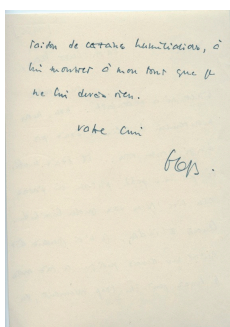 raison de certaine humiliation, à
lui montrer à mon tour que je
ne lui devais rien.
votre ami